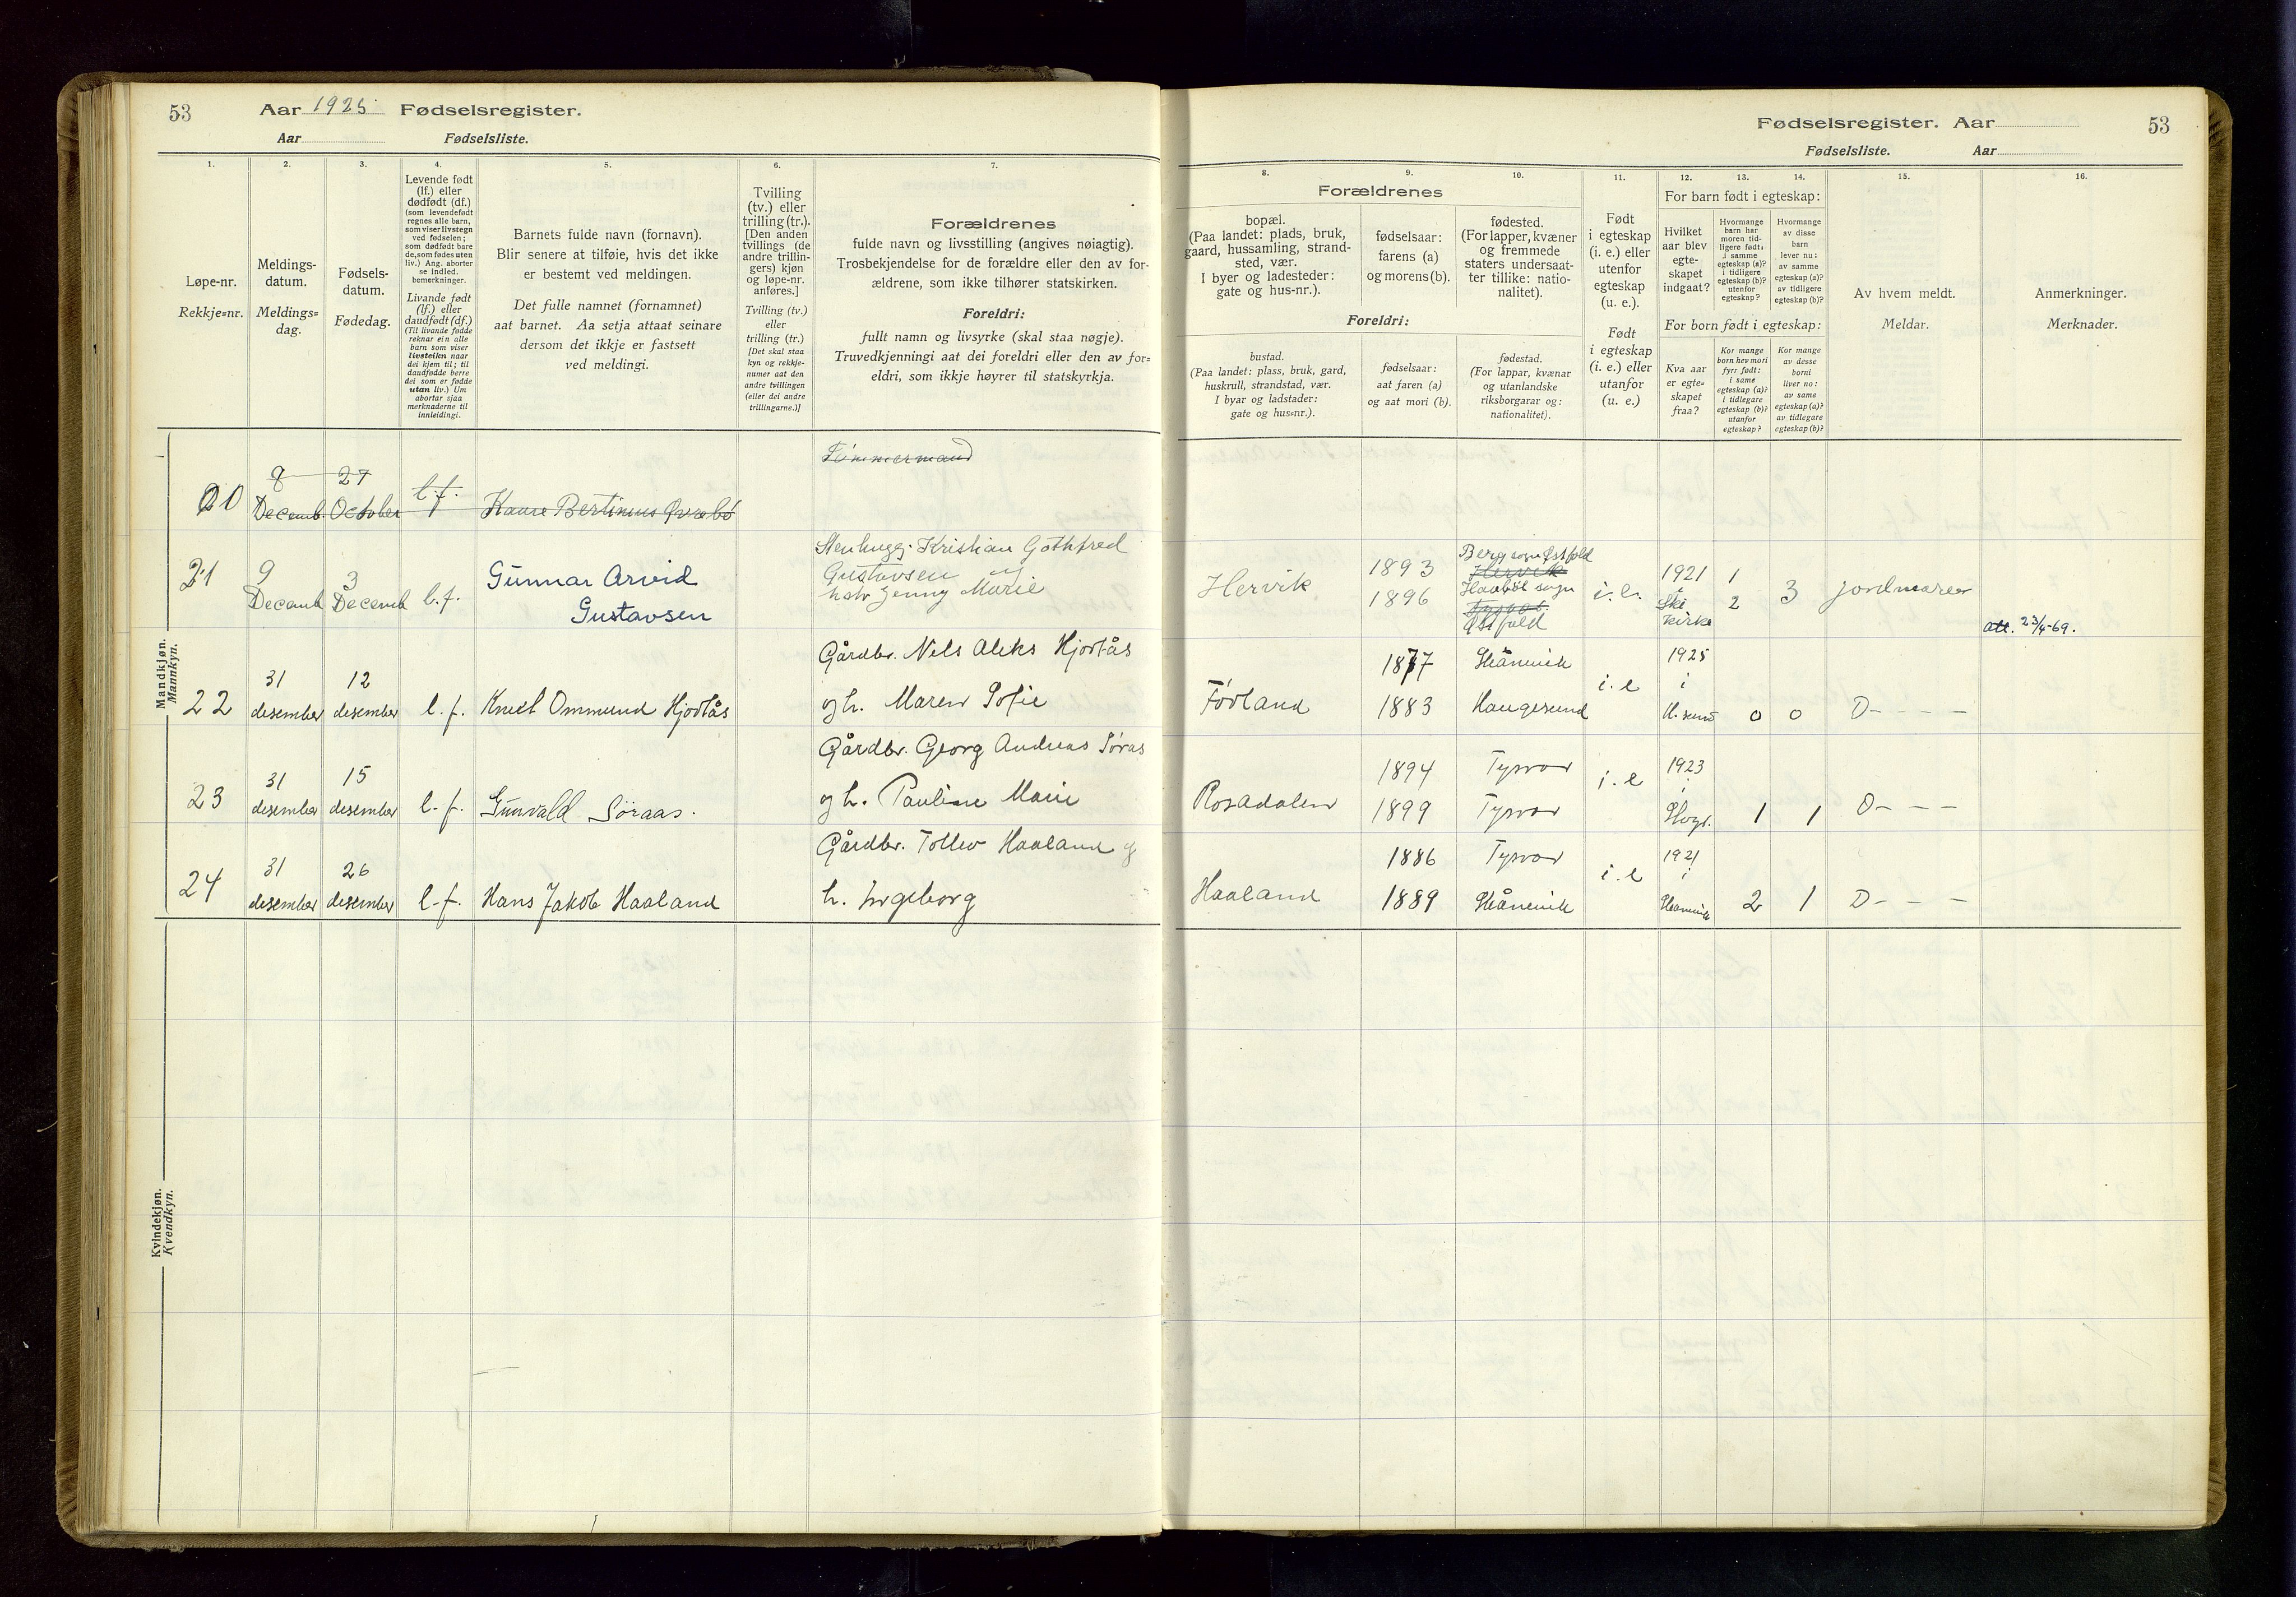 53 Aar 1925 Fødselsregister.
Aar Fødselsliste.
Fødselsregister. Aar 53
Fødselsliste. Aar
1. 2. 3. 4. 5. 6. 7.
Løpe-nr.
Rekkje=nr.
Meldings-
datum.
Meldings=
dag.
Fødsels-
datum.
Fødedag.
Levende født
(lf.) eller
dødfødt (df.)
(som levendefødt
regnes alle barn,
som viser livstegn
ved fødselen;
som dødfødt bare
de, som fødes uten
liv.) Ang. aborter
se indled.
bemerkninger.
Livande født
(lf.) eller
daudfødt (df.)
(Til livande fødde
reknar ein alle
barn som viser
livsteikn naar
dei kjem til; til
daudfødde berre
dei som er fødde
utan liv.) Um
abortar sjaa
merknaderne til
innleidingi.
Barnets fulde navn (fornavn).
Blir senere at tilføie, hvis det ikke
er bestemt ved meldingen.
Det fulle namnet (fornamnet)
aat barnet. Aa setja attaat seinare
dersom det ikkje er fastsett
ved meldingi.
Tvilling
(tv.) eller
trilling (tr.).
[Den anden
tvillings (de
andre trillin-
gers) kjøn
og løpe-nr.
anføres.]
Tvilling (tv.)
eller
trilling (tr.)
[Det skal staa
kyn og rekkje-
numer aat den
andre tvillingen
(eller dei andre
trillingarne.)]
Forældrenes
fulde navn og livsstilling (angives nøiagtig).
Trosbekjendelse for de forældre eller den av for-
ældrene, som ikke tilhører statskirken.
Foreldri:
fullt namn og livsyrke (skal staa nøgje).
Truvedkjenningi aat dei foreldri eller den av for=
eldri, som ikkje høyrer til statskyrkja.
8. 9. 10. 11. 12. 13. 14. 15. 16.
Forældrenes
bopæl.
(Paa landet: plads, bruk,
gaard, hussamling, strand-
sted, vær.
I byer og ladesteder:
gate og hus-nr.).
fødselsaar:
farens (a)
og morens (b).
fødested.
(For lapper, kvæner
og fremmede
staters undersaat-
ter tillike: natio-
nalitet).
Foreldri:
bustad.
(Paa landet: plass, bruk, gard,
huskrull, strandstad, vær.
I byar og ladstader:
gate og hus=nr.).
fødselsaar:
aat faren (a)
og aat mori (b).
fødestad.
(For lappar, kvænar
og utanlandske
riksborgarar og:
nationalitet).
Født
i egteskap
(i. e.) eller
utenfor
egteskap
(u. e.).
Født
i egteskap
(i. e.) eller
utanfor
(u. e.)
For barn født i egteskap:
Hvilket
aar blev
egte-
skapet
indgaat?
Hvormange
barn har
moren tid-
ligere født:
i samme
egteskap (a)?
i tidligere
egteskap (b)?
utenfor
egteskap?
Hvormange
av disse
barn
lever nu:
av samme
egteskap (a)?
av tidligere
egteskap (b)?
For born født i egteskap:
Kva aar
er egte=
skapet
fraa?
Kor mange
born hev mori
fyrr født:
i same
egteskap (a)?
i tidlegare
egteskap (b)?
utanfor
egteskap?
Kor mange
av desse
borni
liver no:
av same
egteskap (a)?
av tidlegare
egteskap (b)?
Av hvem meldt.
Meldar.
Anmerkninger.
Merknader.
Mandkjøn.
Mannkyn.
Tømmermand
20 8 Decemb. 27 October l.f. Kaare Bertinius Øvrebø
21 9 Decemb 3 Decemb l.f. Gunnar Arvid
Gustavsen
Stenhugg. Kristian Gothfred
Gustavsen og
hstr Jenny Marie
Hervik 1893 1896
Berg sogn Østfold
Hervik
Haabøl sogn
Tysvær
Østfold
i.e. 1921 i Ski kirke 1 2 3 jordmoren
att. 23/4-69.
22 31 desember 12 desember l.f. Knut Ommund Hjortås
Gårdbr. Nils Aleks Hjortås
og h. Maren Sofie
Førland 1877 Skånevik
1883 Haugesund
i.e 1925 i H.sund 0 0 D- - - -
23 31 desember 15 desember l.f. Gunvald Søraas.
Gårdbr. Georg Andreas Søraas
og h. Pauline Marie
Rosadalen 1894 Tysvær
1899 Tysvær
i.e 1923 i 1 1 D- - -
24 31 desember 26 desember l.f. Hans Jakob Haaland
Gårdbr. Tollev Haaland og
h. Ingeborg
Haaland 1886 Tysvær
1889 Skånevik
i.e 1921 i Skånevik 2 1 D- - -
Kvindekjøn.
Kvendkyn.